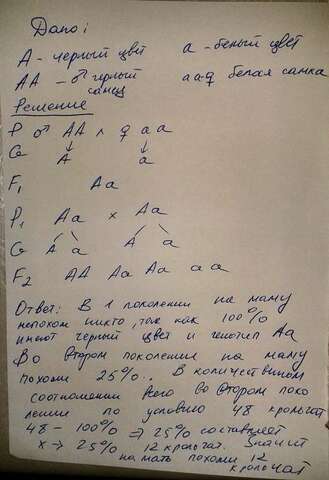 Дано:
А - черный цвет а - белый цвет
АА - ♂ черный самец аа ♀ белая самка
Решение
Р ♂ АА х ♀ аа
G А а
F1 Аа
Р1 Аа х Аа
G А а А а
F2 АА Аа Аа аа
Ответ: В 1 поколении на маму
непохож никто, так как 100%
имеют черный цвет и генотип Аа
Во втором поколении на маму
похожи 25%. В количественом
соотношении всего во втором поко
лении по условию 48 крольчат
48 - 100% => 25% составляет
х -> 25% 12 крольчат. Значит
на мать похожи 12
крольчат